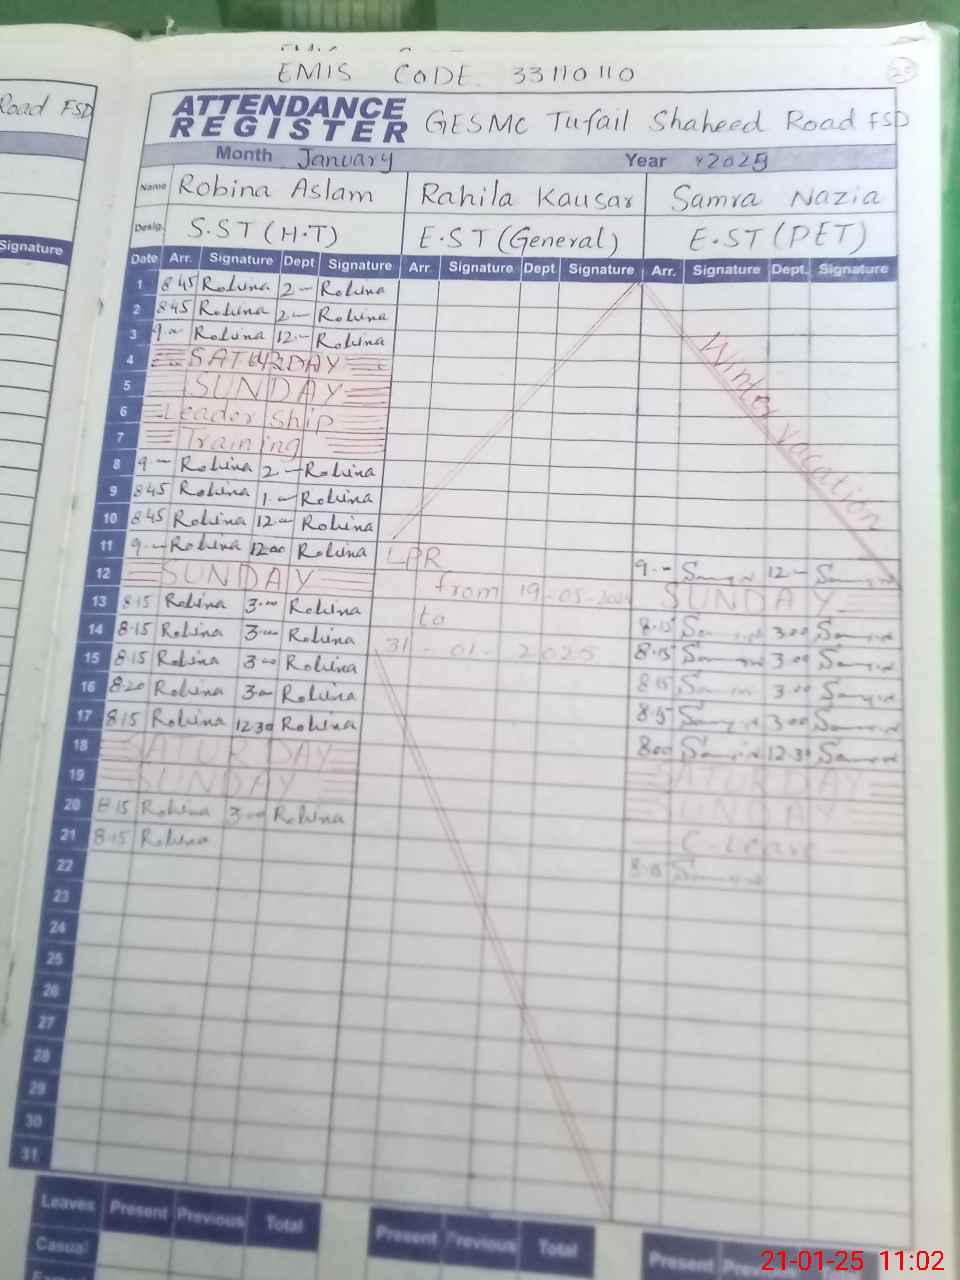 Road FSD
Signature
EMIS CODE. 33110110
ATTENDANCE REGISTER GESMC Tufail Shaheed Road FSD
Month January Year 2025
Name Robina Aslam Rahila Kausar Samra Nazia
Desig. S.ST (H.T) E.ST (General) E.ST (PET)
Date Arr. Signature Dept Signature Arr. Signature Dept Signature Arr. Signature Dept. Signature
1 8 45 Robina 2 — Robina
2 8 45 Robina 2 — Robina
3 9.— Robina 12.— Robina
4 SATURDAY
5 SUNDAY
6 Leader Ship
7 Training
Winter vacation
8 9.— Robina 2 — Robina
9 8 45 Robina 1.— Robina
10 8 45 Robina 12.— Robina
11 9.— Robina 12.00 Robina LPR 9.— 12—
12 SUNDAY from 19-05-2024 SUNDAY
13 8.15 Robina 3.00 Robina to 8.15 3.00
14 8.15 Robina 3.00 Robina 31-01-2025 8.15 3.00
15 8.15 Robina 3.00 Robina 8.15 3.00
16 8.20 Robina 3.00 Robina 8.15 3.00
17 8.15 Robina 12.30 Robina 8.00 12.30
18 SATURDAY SATURDAY
19 SUNDAY SUNDAY
20 8.15 Robina 3.00 Robina C-Leave
21 8.15 Robina 8.15
22
23
24
25
26
27
28
29
30
31
Leaves Present Previous Total Present Previous Total Present Previous
Casual
21-01-25 11:02